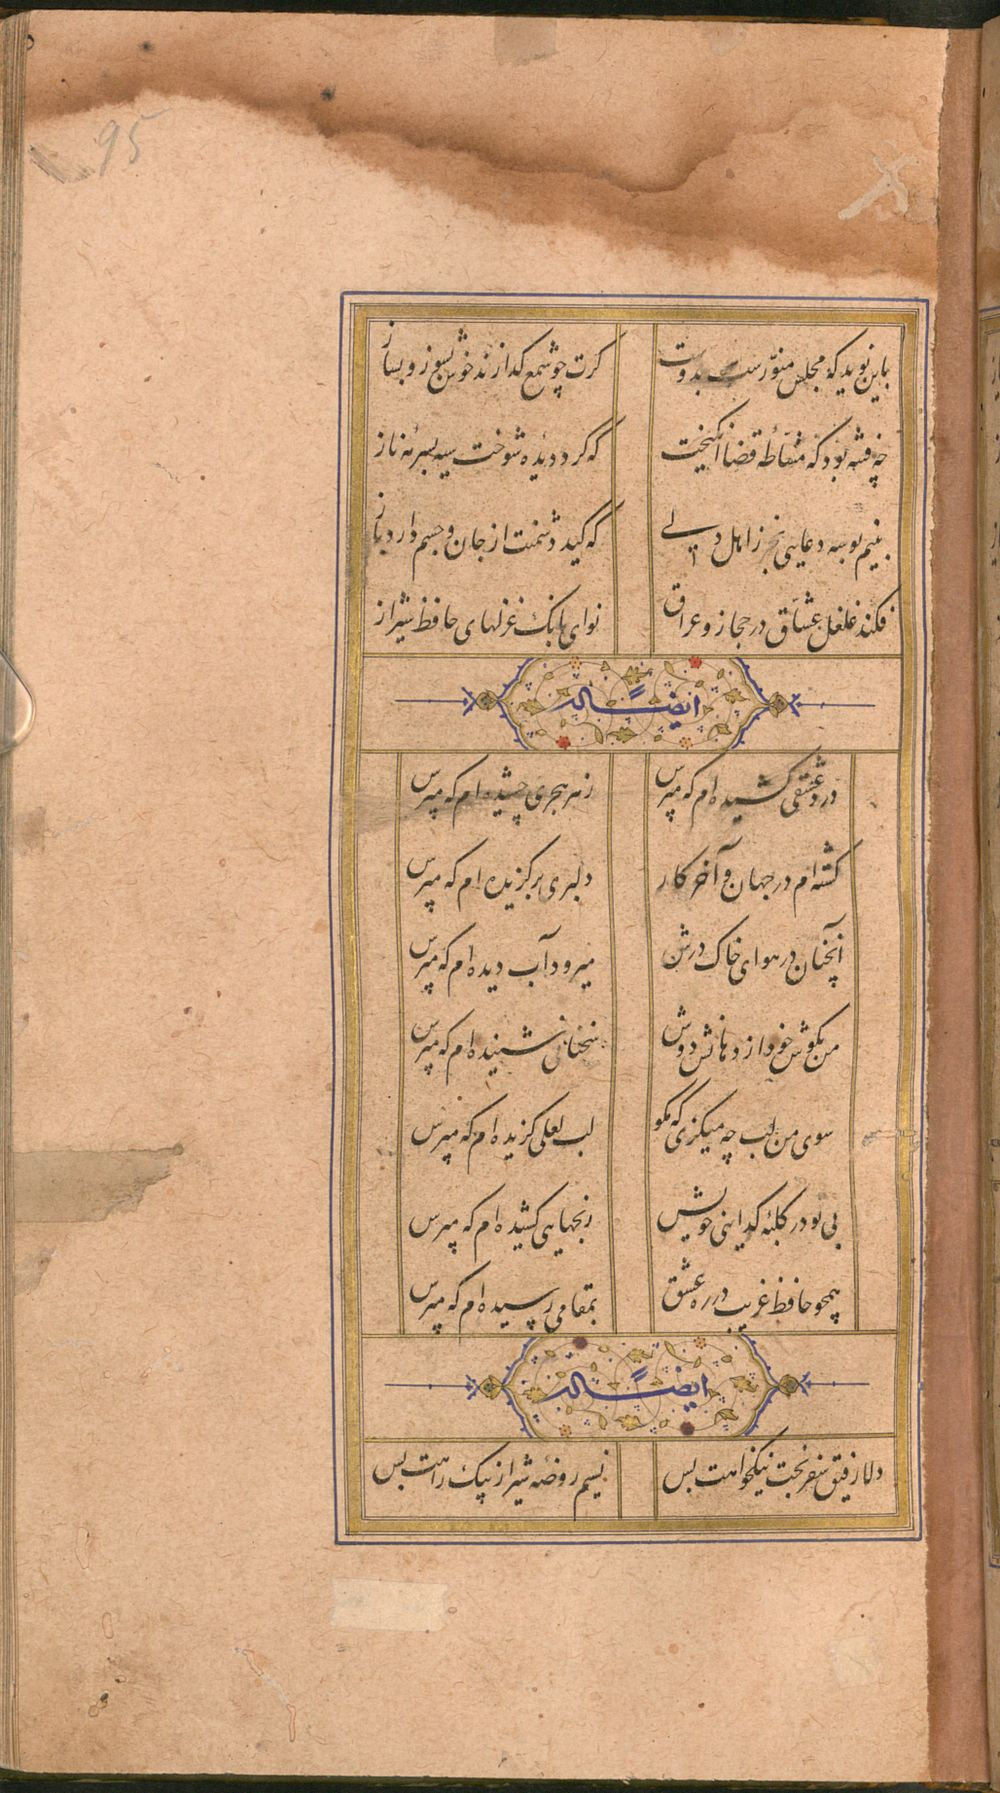 95
باین نوید که مجلس منورست بدوست گرت چو شمع گدازند خوش بسوز و بساز
چه فتنه بود که مشاطهٔ قضا انگیخت که کرد دیدهٔ شوخت سیه بسرمهٔ ناز
بنیم بوسه دعایی بخر ز اهل دلی که کید دشمنت از جان و جسم دارد باز
فکند غلغل عشاق در حجاز و عراق نوای بانک غزلهای حافظ شیراز
ایضاً له
درد عشقی کشیده‌ام که مپرس زهر هجری چشیده‌ام که مپرس
کشته‌ام در جهان و آخر کار دلبری برگزیده‌ام که مپرس
آنچنان در هوای خاک درش میرود آب دیده‌ام که مپرس
من بگوش خود از دهانش دوش سخنانی شنیده‌ام که مپرس
سوی من لب چه میگزی که مگو لب لعلی گزیده‌ام که مپرس
بی تو در کلبهٔ گدایی خویش رنجهایی کشیده‌ام که مپرس
همچو حافظ غریب در ره عشق بمقامی رسیده‌ام که مپرس
ایضاً له
دلا رفیق سفر بخت نیکخواهت بس نسیم روضهٔ شیراز پیک راهت بس